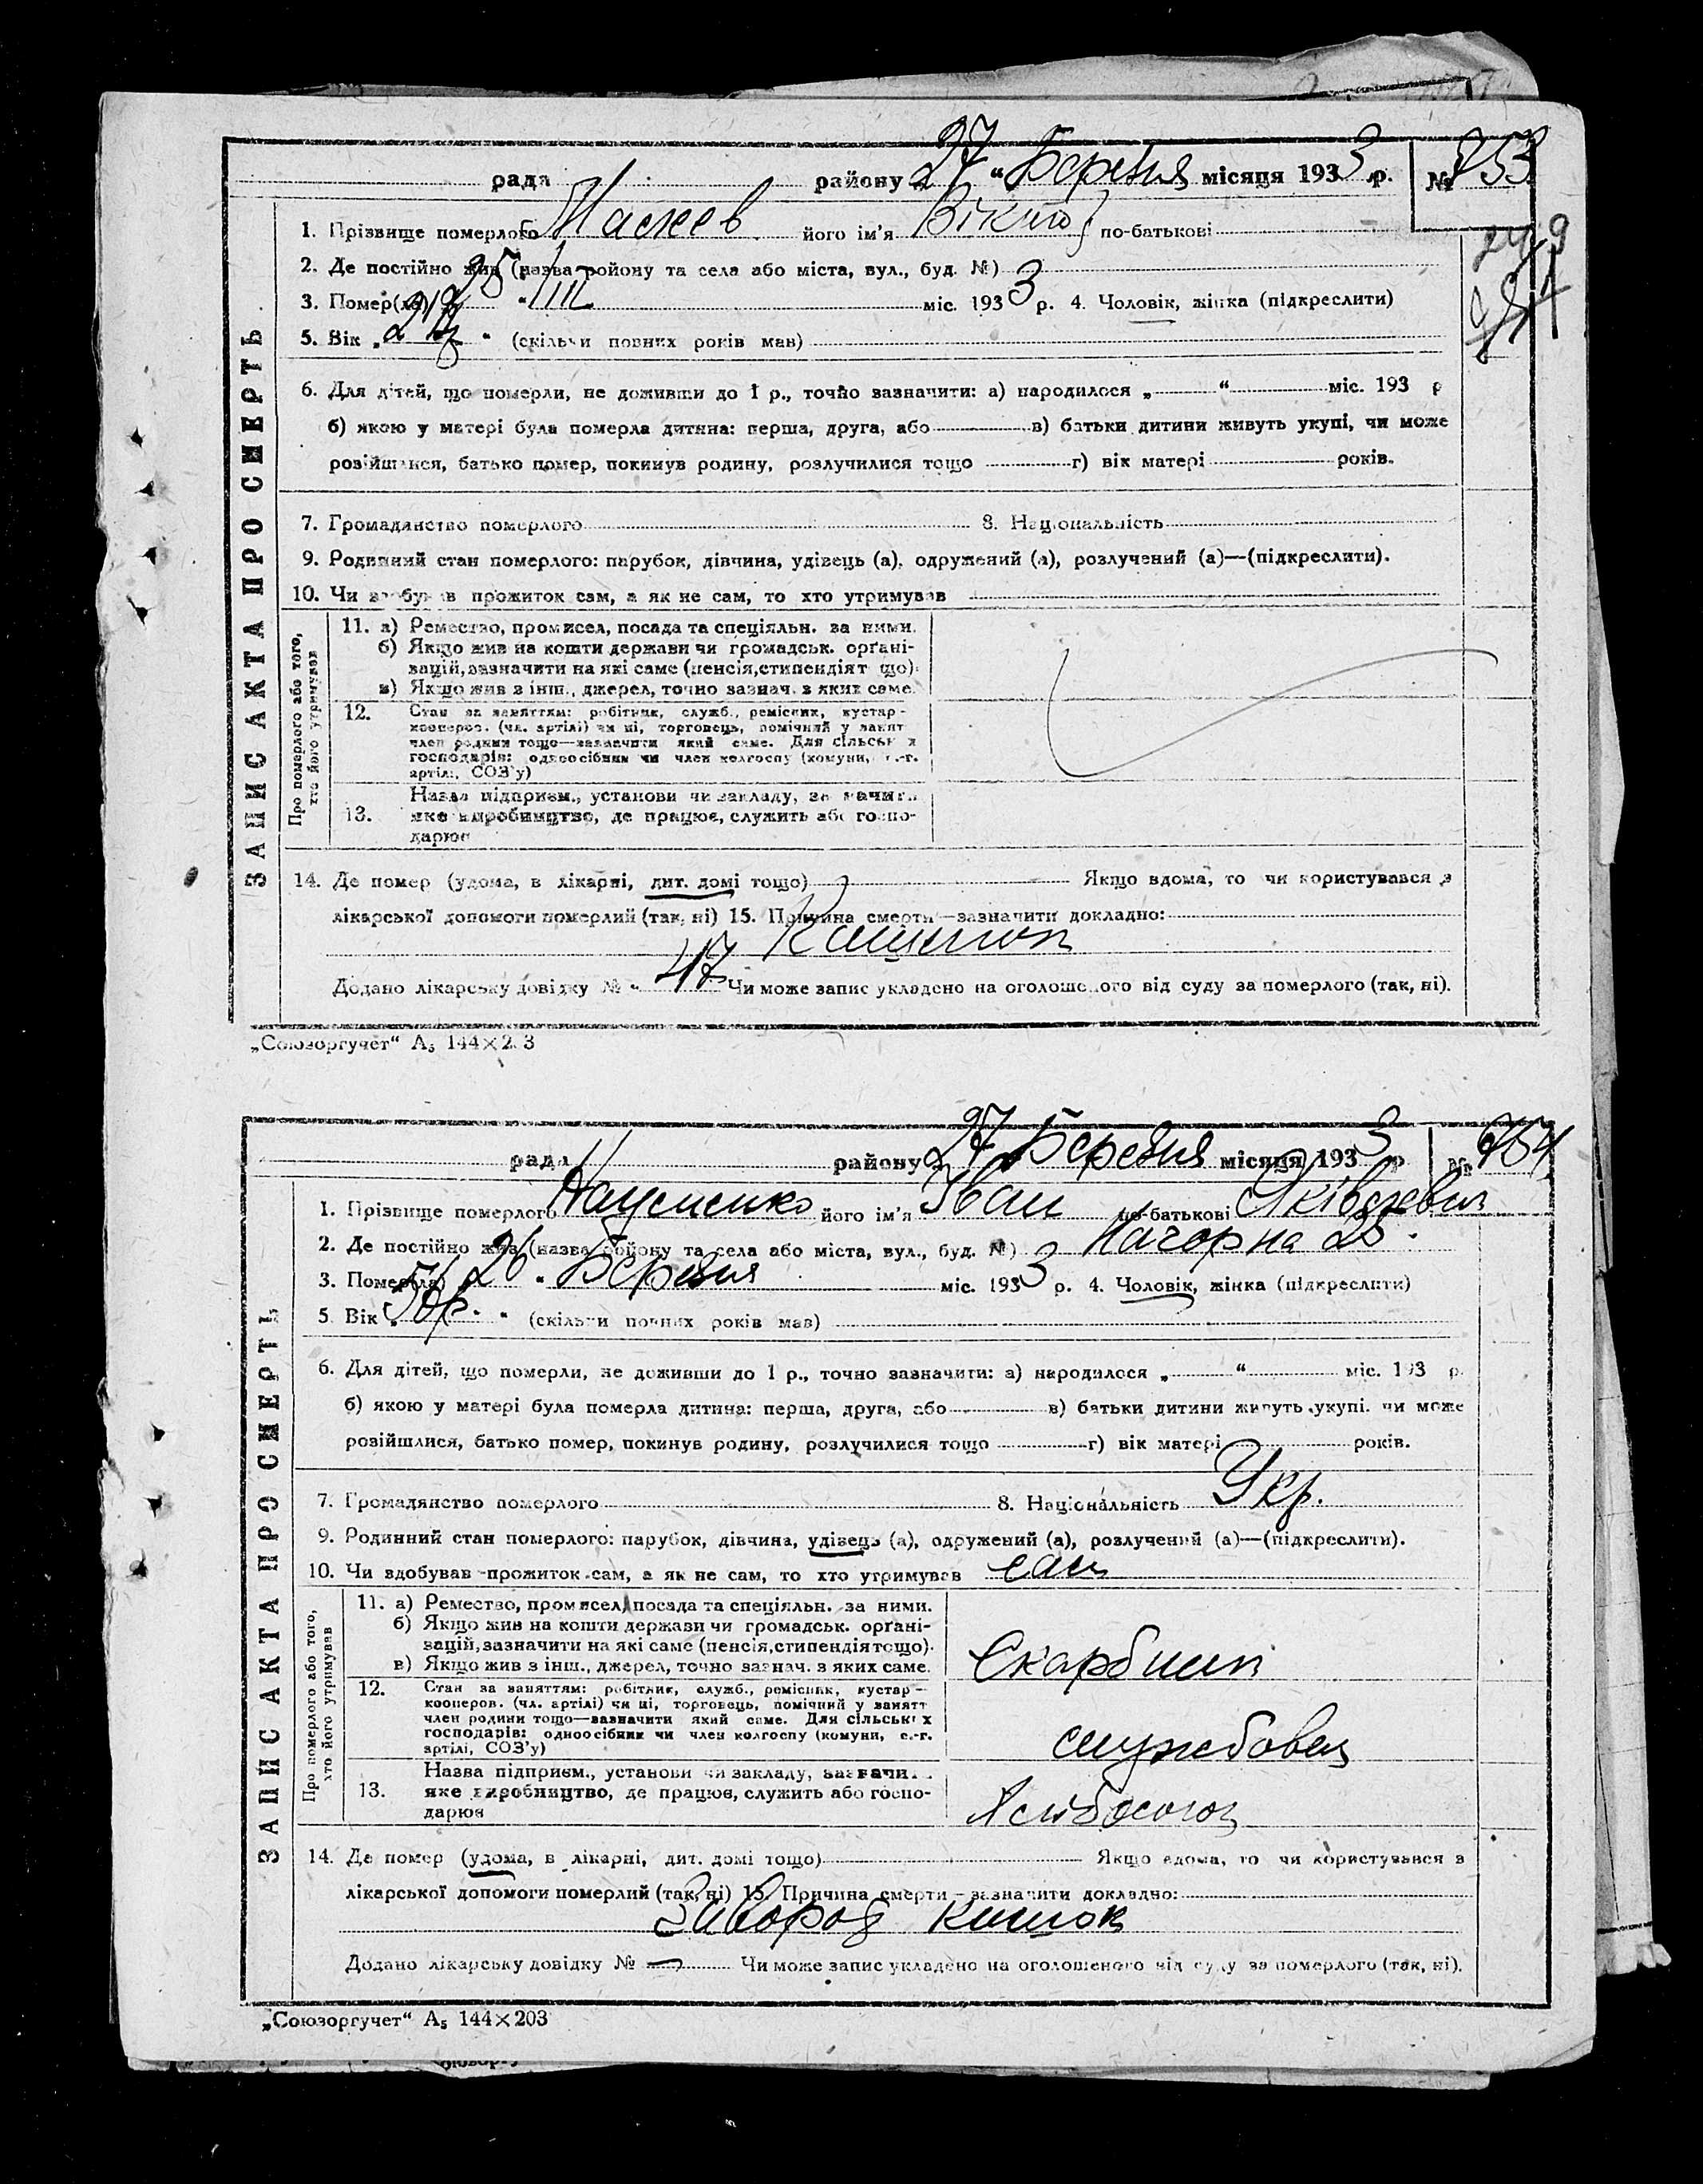 рада района „27“ Березня місяця 1933 р. № 753
1. Прізвище померлого Маскев його ім’я Віктор по-батькові
2. Де постійно жив (назва район у та села або міста, вул., буд. №)
3. Помер(ла) „25“ III міс. 1933 р. 4. Чоловік, жінка (підкреслити)
5. Вік „ “ (скільки повних років мав)
6. Для дітей, що померли, не доживши до 1 р., точно зазначити: а) народилося „ “ міс. 193 р
б) якою у матері була померла дитина: перша, друга, або в) батьки дитини живуть укупі, чи може
розійшлися, батько помер, покинув родину, розлучилися тощо г) вік матері років.
7. Громадянство померлого 8. Національність
9. Родинний стан померлого: парубок, дівчина, удівець (а), одружений (а), розлучений (а)—(підкреслити).
10. Чи здобував прожиток сам, а як не сам, то хто утримував
ЗАПИС АКТА ПРО СМЕРТЬ
Про померлого або того, хто його утримував
11. а) Ремество, промисел, посада та спеціяльн. за ними.
б) Якщо жив на кошти держави чи громадськ. орґані-
зацій, зазначити на які саме (пенсія, стипендія т що).
в) Якщо жив з інш., джерел, точно зазнач. з яких саме.
12. Стан за заняттям: робітник, служб., ремісник, кустар-
кооперов. (чл. артілі) чи ні, торговець, помічний у занят
член родини тощо—зазначити який саме. Для сільськ х
господарів: одноосібник чи член колгоспу (комуни, с.-г.
артілі, СОЗ’у)
13. Назва підприєм., установи чи закладу, зазначити
яке виробництво, де працює, служить або госпо-
дарює
14. Де помер (удома, в лікарні, дит. домі тощо) Якщо вдома, то чи користувався з
лікарської допомоги померлий (так, ні) 15. Причина смерти—зазначити докладно:
Додано лікарську довідку № „ 47 Чи може запис укладено на оголошеного від суду за померлого (так, ні).
„Союзоргучёт“ А₅ 144×2 3
рада району 27 Березня місяця 1933 р № 754
1. Прізвище померлого Науменко його ім’я Іван по-батькові Яківлевич
2. Де постійно жив (назва району та села або міста, вул., буд. №) Нагорна 25.
3. Помер(ла) „26“ Березня міс. 1933 р. 4. Чоловік, жінка (підкреслити)
5. Вік „56р.“ (скільки повних років мав)
6. Для дітей, що померли, не доживши до 1 р., точно зазначити: а) народилося „ “ міс. 193 р.
б) якою у матері була померла дитина: перша, друга, або в) батьки дитини живуть укупі. чи може
розійшлися, батько помер, покинув родину, розлучилися тощо г) вік матері років.
7. Громадянство померлого 8. Національність Укр.
9. Родинний стан померлого: парубок, дівчина, удівець (а), одружений (а), розлучений (а)—(підкреслити).
10. Чи здобував прожиток сам, а як не сам, то хто утримував сам
ЗАПИС АКТА ПРО СМЕРТЬ
Про померлого або того, хто його утримував
11. а) Ремество, промисел, посада та спеціяльн. за ними.
б) Якщо жив на кошти держави чи громадськ. орґані-
зацій, зазначити на які саме (пенсія, стипендія тощо).
в) Якщо жив з інш., джерел, точно зазнач. з яких саме.
Скарбник
12. Стан за заняттям: робітник, служб., ремісник, кустар-
кооперов. (чл. артілі) чи ні, торговець, помічний у занятт
член родини тощо—зазначити який саме. Для сільськ х
господарів: одноосібник чи член колгоспу (комуни, с.-г.
артілі, СОЗ’у)
службовец
13. Назва підприєм., установи чи закладу, зазначи
яке виробництво, де працює, служить або госпо-
дарює
14. Де помер (удома, в лікарні, дит. домі тощо) Якщо вдома, то чи користувався з
лікарської допомоги померлий (так, ні) 15. Причина смерти—зазначити докладно:
Завород кишок
Додано лікарську довідку № — Чи може запис укладено на оголошеного від суду за померлого (так, ні).
„Союзоргучет“ А₅ 144×203